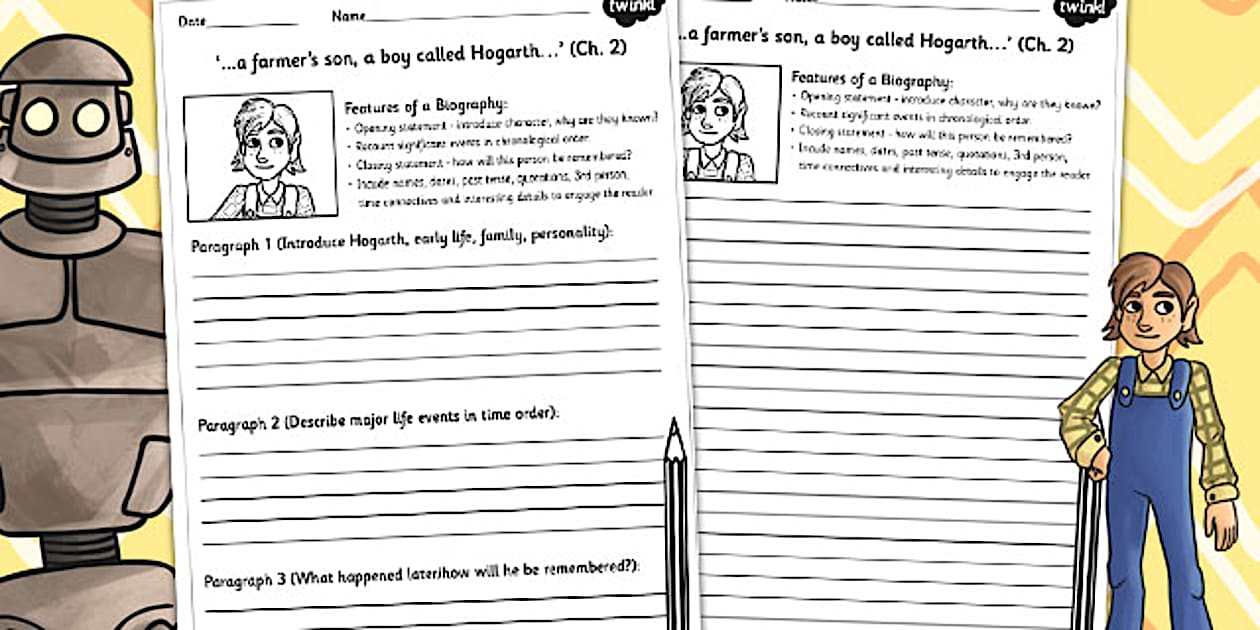 Date Name
twinkl
'...a farmer's son, a boy called Hogarth...' (Ch. 2)
Features of a Biography:
• Opening statement - introduce character, why are they known?
• Recount significant events in chronological order.
• Closing statement - how will this person be remembered?
• Include names, dates, past tense, quotations, 3rd person,
time connectives and interesting details to engage the reader
Paragraph 1 (Introduce Hogarth, early life, family, personality):
Paragraph 2 (Describe major life events in time order):
Paragraph 3 (What happened later/how will he be remembered?):
twinkl
..a farmer's son, a boy called Hogarth...' (Ch. 2)
Features of a Biography:
• Opening statement - introduce character, why are they known?
• Recount significant events in chronological order.
• Closing statement - how will this person be remembered?
• Include names, dates, past tense, quotations, 3rd person,
time connectives and interesting details to engage the reader